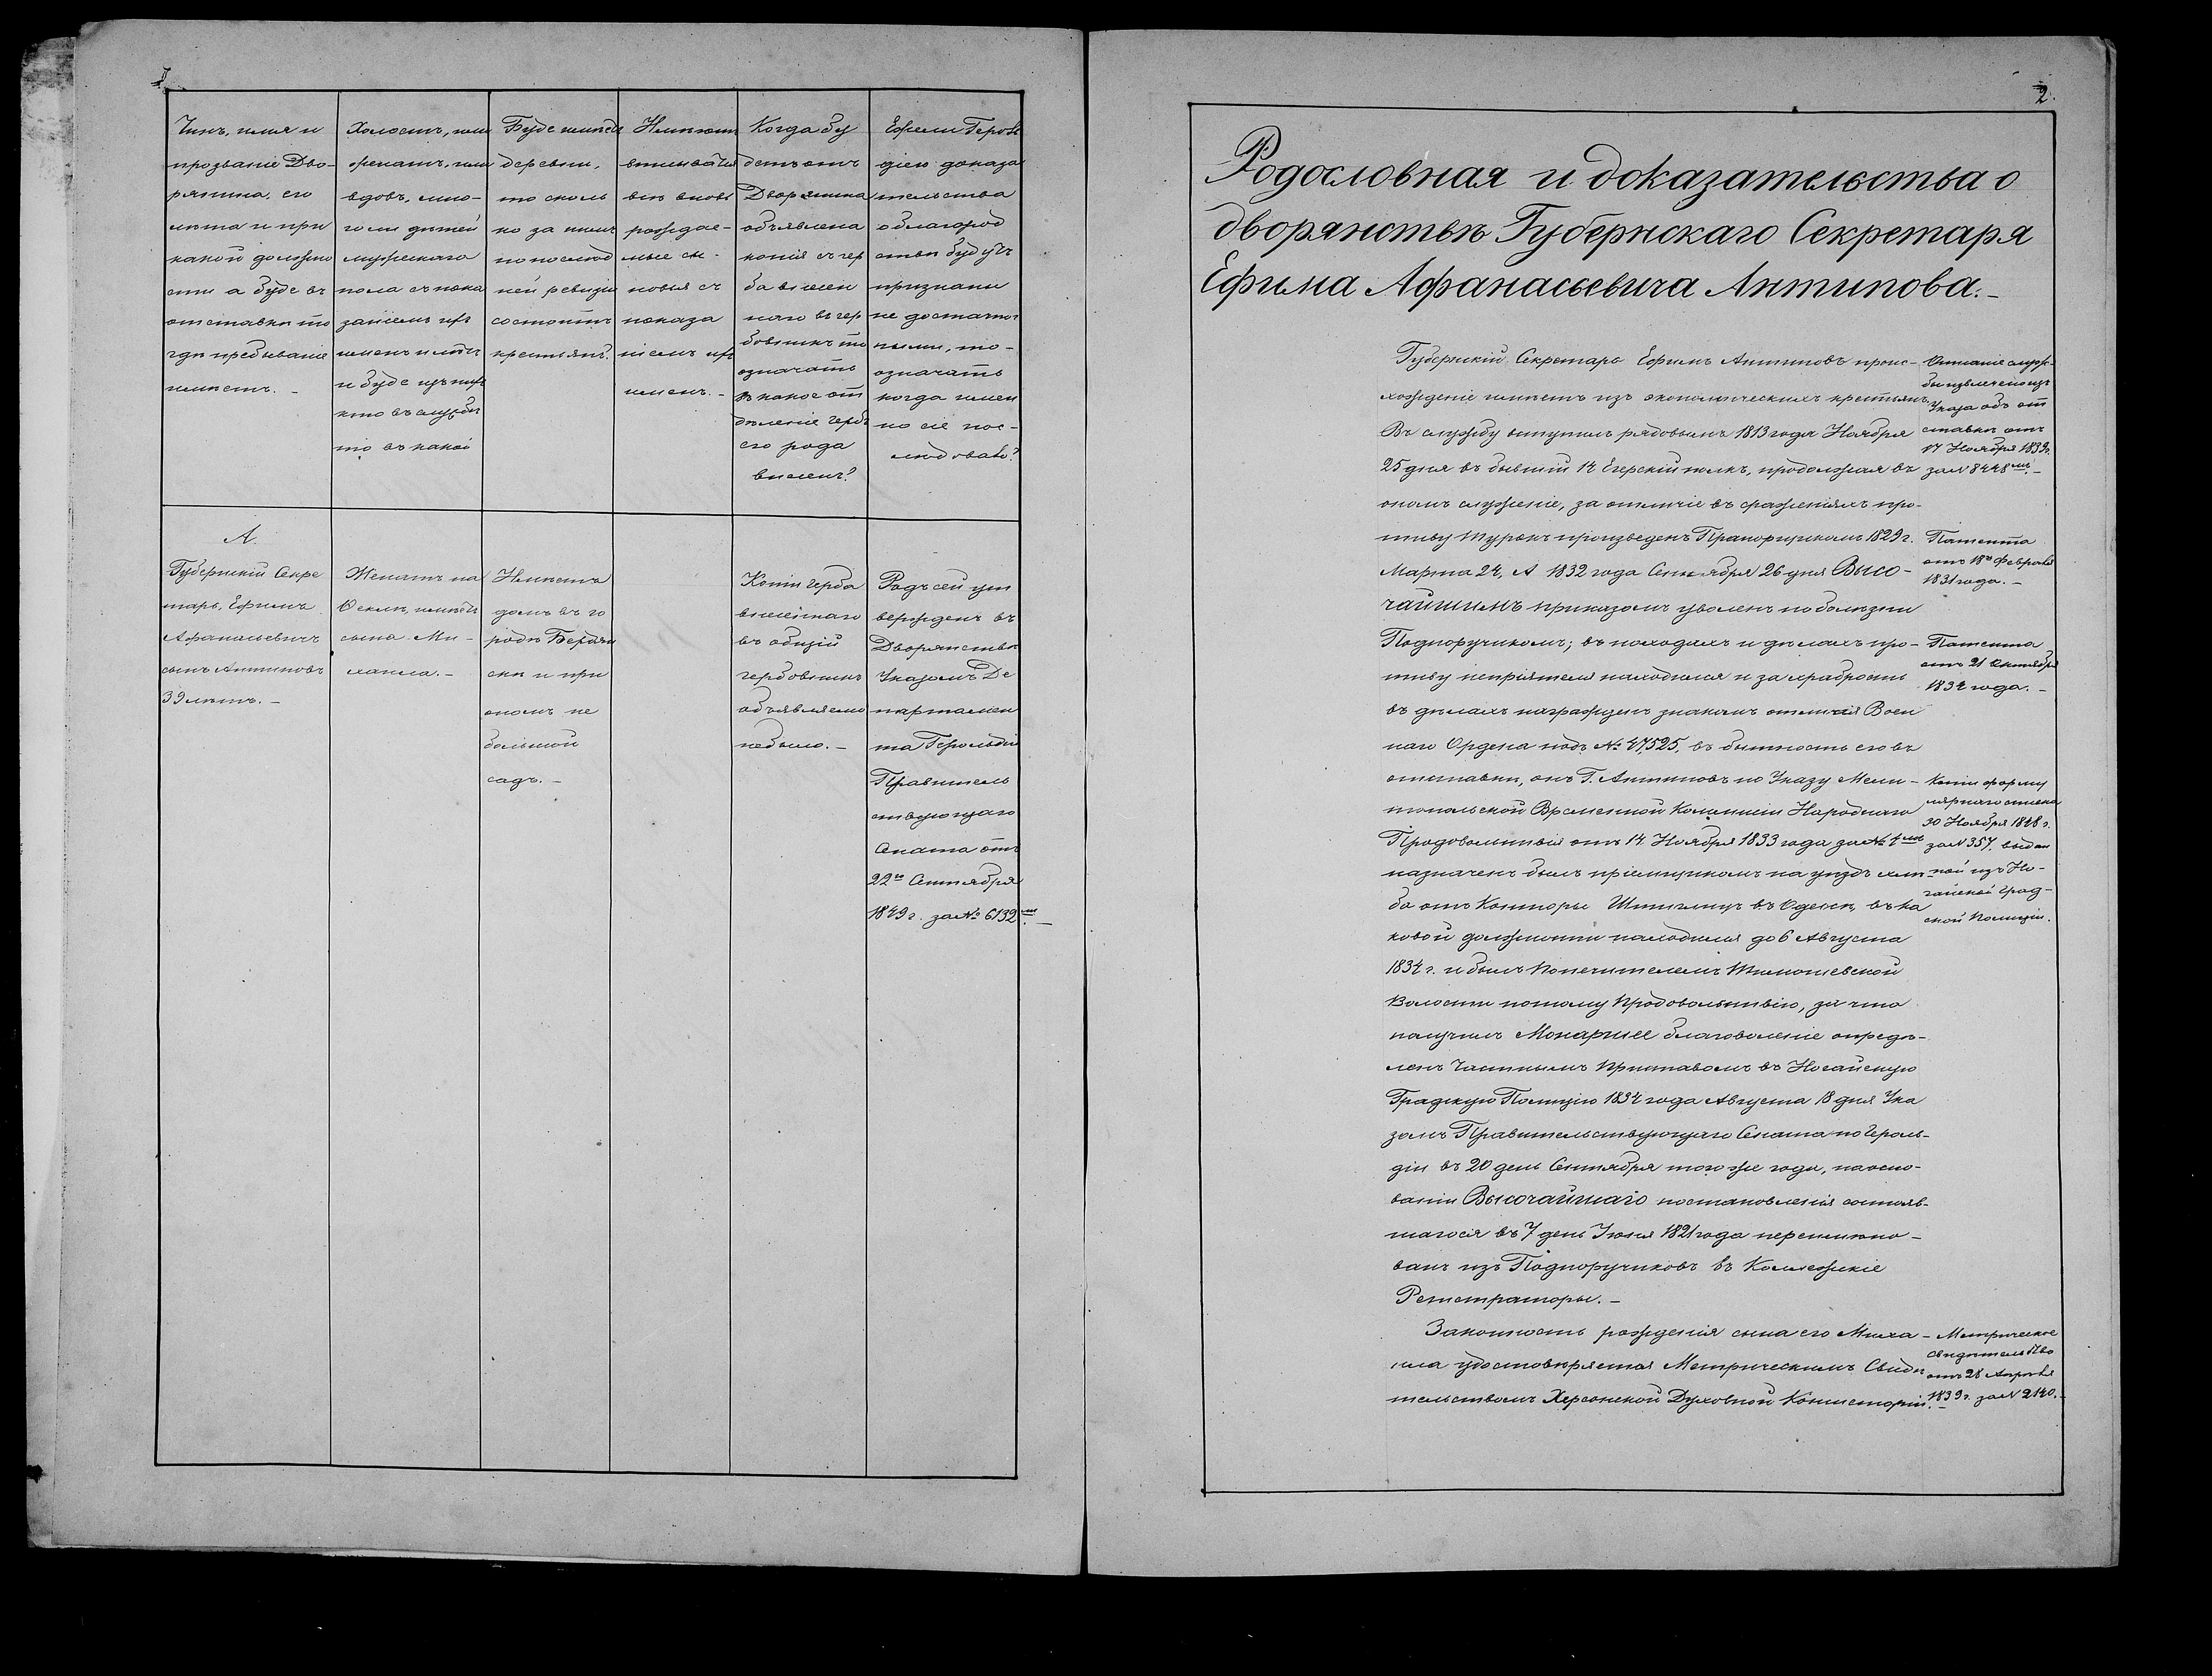 1
Чинъ, имя и
прозваніе Дво-
рянина, его
лѣта и при
какой должно
сти а буде въ
отставки то
гдѣ пребываніе
имѣетъ. -
Холостъ, или
женатъ, или
вдовъ, мно-
голи дѣтей
мужескаго
пола съ пока
заніемъ ихъ
именъ и лѣтъ
и буде изъ нихъ
кто въ службѣ
то въ какой
Буде имѣетъ
деревни,
то сколь
ко за нимъ
по послѣд
ней ревизіи
состоитъ
крестьянъ.
Имѣютъ
вписыватся
въ вновь
рождае-
мые сы-
новья съ
показа
ніемъ ихъ
именъ. -
Когда бу
детъ отъ
Дворянина
объявлена
копія съ гер
ба внесен
наго въ гер
бовникъ то
означать
въ какое от
дѣленіе гербъ
его рода
внесенъ?
Ежели Героль
діею доказа
тельства
о благород
ствѣ будутъ
признаны
не достаточ
ными, то-
означать
когда имен
но сіе пос-
лѣдовало?
А.
Губернскій Секре
тарь, Ефимъ
Афанасьевичъ
сынъ Антиповъ
39 лѣтъ. -
Женатъ на
Ѳеклѣ, имѣетъ
сына Ми-
хаила. -
Имѣетъ
домъ въ го
родѣ Бердян
скѣ и при
ономъ не
большой
садъ. -
Копіи герба
внесеннаго
въ общій
гербовникъ
объявляемо
не было. -
Родъ сей ут
вержденъ въ
Дворянствѣ
Указомъ Де
партамен
та Герольдіи
Правитель
ствующаго
Сената отъ
22го Сентября
1849 г. за № 6132мъ. -
2.
Родословная и доказательства о
дворянствѣ Губернскаго Секретаря
Ефима Афанасьевича Антипова. -
Губернскій Секретарь Ефимъ Антиповъ проис-
хожденіе имѣетъ изъ экономическихъ крестьянъ.
Въ службу вступилъ рядовымъ 1813 года Ноября
25 дня въ бывшій 14 Егерскій полкъ, продолжая въ
ономъ служеніе, за отличіе въ сраженіяхъ про-
тиву Турокъ произведенъ Прапорщикомъ 1829 г.
Марта 24, А 1832 года Сентября 26 дня Высо-
чайшимъ приказомъ уволенъ по болѣзни
Подпоручикомъ; въ походахъ и дѣлахъ про-
тиву непріятеля находился и за храбрость
въ дѣлахъ награжденъ знакомъ отличія Воен
наго Ордена подъ № 47,525, въ бытность его въ
отставки, онъ Г. Антиповъ по Указу Мели-
топольской Временной Коммисіи Народнаго
Продовольствія отъ 14 Ноября 1833 года за № 1мъ
назначенъ былъ пріемщикомъ на уѣздъ хлѣ
ба отъ Конторы Штиглицъ въ Одессѣ, въ ка
ковой должности находился до 6 Августа
1834 г. и былъ Попечителемъ Тимошевской
Волости потому Продовольствію, за что
получилъ Монаршее благоволеніе опредѣ-
ленъ Частнымъ Приставомъ въ Ногайскую
Градскую Полицію 1834 года Августа 18 дня Ука
зомъ Правительствующаго Сената по Героль-
діи въ 20 день Сентября того же года, на осно-
ваніи Высочайшаго постановленія состояв-
шагося въ 7 день Іюня 1821 года переимено-
ванъ изъ Подпоручиковъ въ Коллежскіе
Регистраторы. -
Законность рожденія сына его Миха-
ила удостовѣряется Метрическимъ Свидѣ
тельствомъ Херсонской Духовной Консисторіи. -
Описаніе служ-
бы извлечено изъ
Указа объ от
ставки отъ
17 Ноября 1839 г.
за № 8448мъ. -
Патента
отъ 18го Февраля
1831 года. -
Патента
отъ 21 Октября
1834 года. -
Копія формu
лярнаго списка
30 Ноября 1848 г.
за № 357, выдан
ной изъ Но-
гайской Град-
ской Полиціи.
Метрическое
свидѣтельство
отъ 28 Апрѣля
1839 г. за № 2140. -